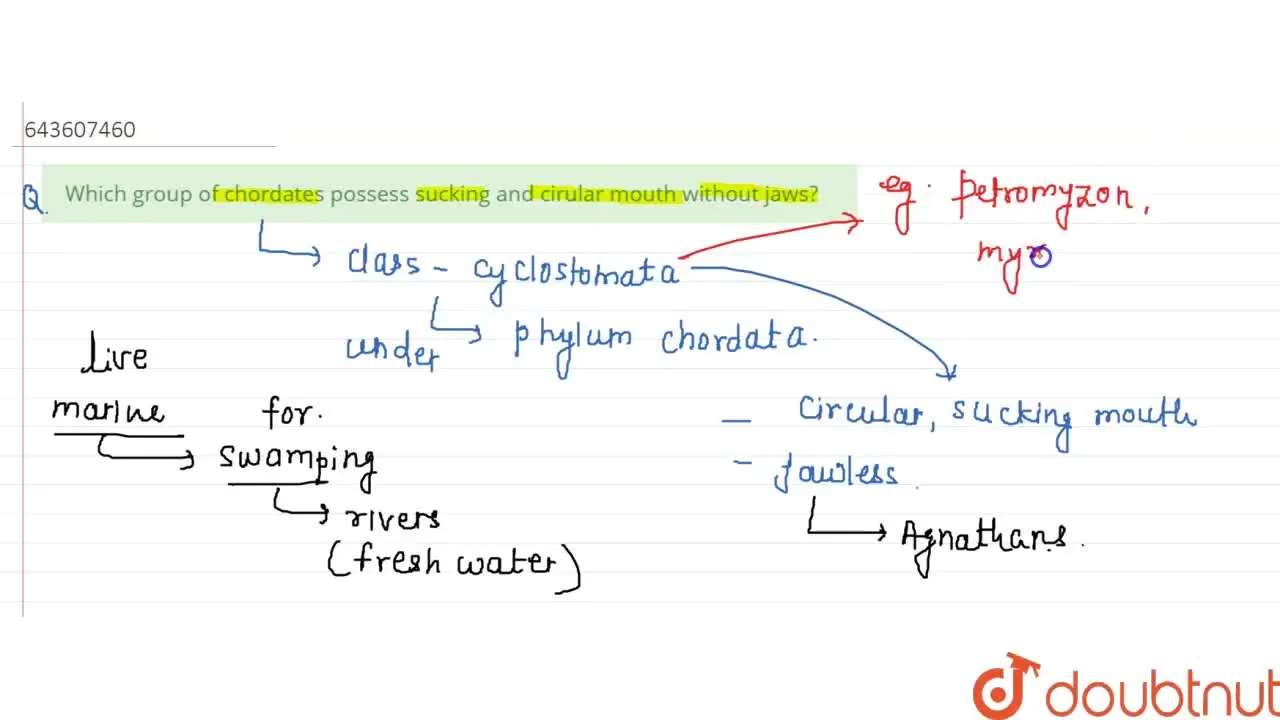 643607460
Q. Which group of chordates possess sucking and cirular mouth without jaws?
eg. Petromyzon,
myx
class - cyclostomata
under phylum chordata.
live
marine for.
swamping
rivers
(fresh water)
- Circular, sucking mouth
- Jawless.
Agnathans.
doubtnut